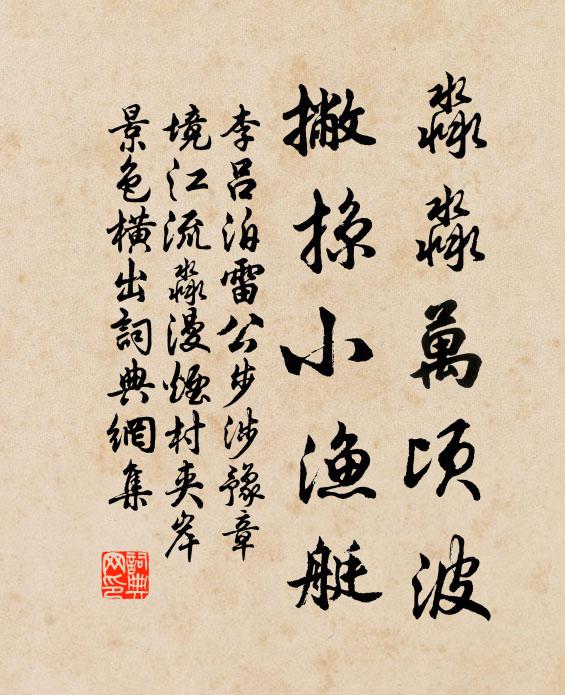 淼淼萬頃波
撇掠小漁艇
李呂泊雷公步涉豫章
境江流淼漫煙村夹岸
景色橫出詞典網集
詞典网印